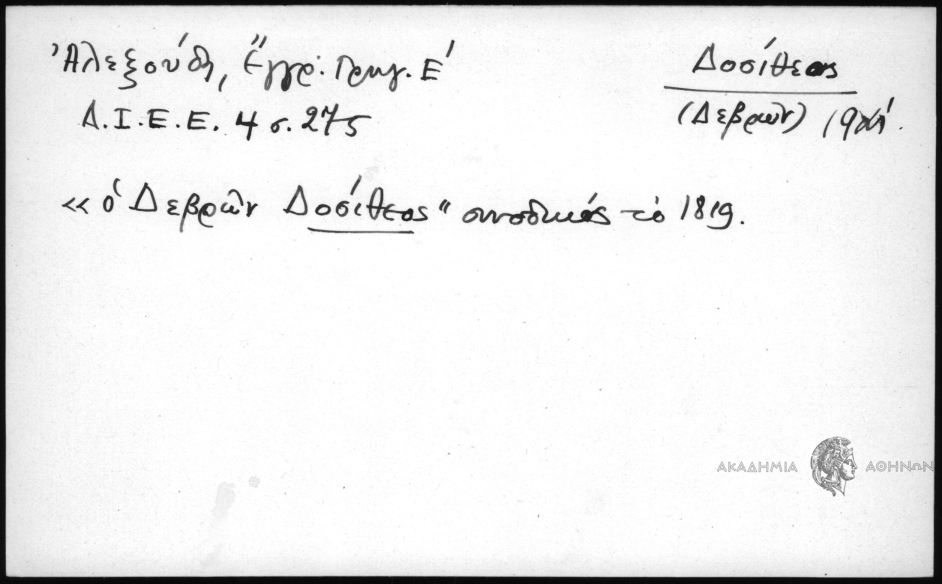 Ἀλεξούδη, Ἔγγρ. Γρηγ. Ε΄
Δ.Ι.Ε.Ε. 4 σ. 275
Δοσίθεος
(Δεβρῶν)
« ὁ Δεβρῶν Δοσίθεος" συνοδικός τὸ 1819.
ΑΚΑΔΗΜΙΑ ΑΘΗΝΩΝ